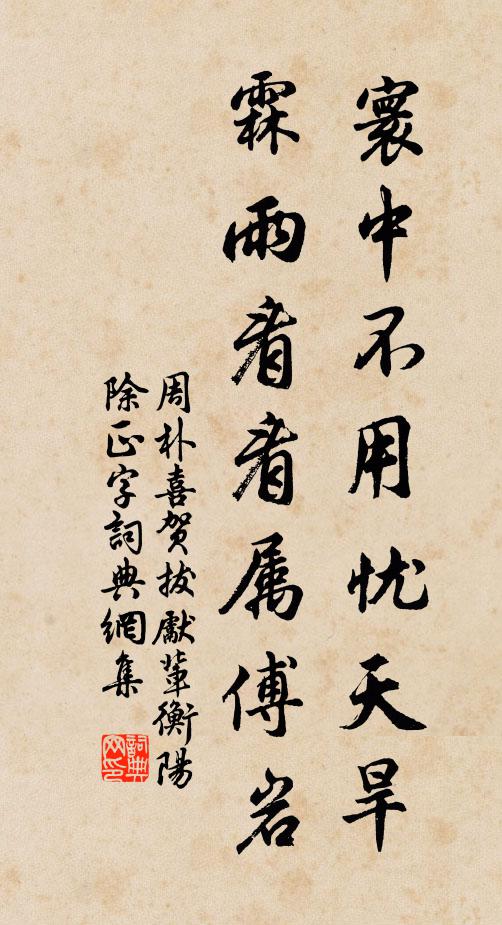 寰中不用忧天旱
霖雨看看属傅岩
周朴喜贺拔獻輩衡陽
除正字詞典網集
詞典网印